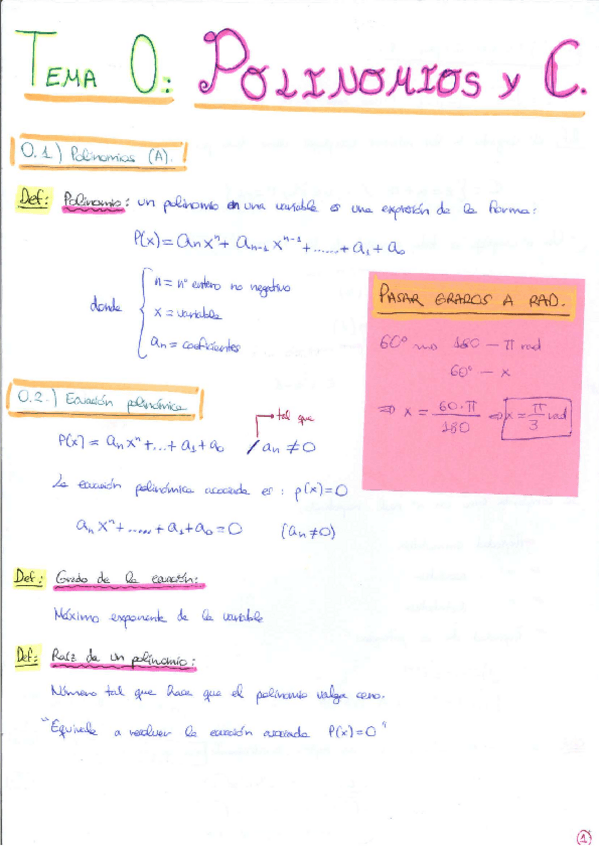 TEMA 0: POLINOMIOS y C.
0.1) Polinomios (A).
Def: Polinomio: un polinomio en una variable es una expresión de la forma:
P(x) = aₙxⁿ + aₙ₋₁xⁿ⁻¹ + ...... + a₁ + a₀
donde
n = nº entero no negativo
x = variable
aₙ = coeficientes
PASAR GRADOS A RAD.
60º 180 — π rad
60º — x
⇒ x = 60·π/180 ⇒ x = π/3 rad
0.2.) Ecuación polinómica
tal que
P(x) = aₙxⁿ + ... + a₁ + a₀ / aₙ ≠ 0
La ecuación polinómica asociada es: p(x) = 0
aₙxⁿ + ..... + a₁ + a₀ = 0 (aₙ ≠ 0)
Def: Grado de la ecuación:
Máximo exponente de la variable
Def: Raíz de un polinomio:
Número tal que hace que el polinomio valga cero.
"Equivale a resolver la ecuación asociada P(x) = 0"
1